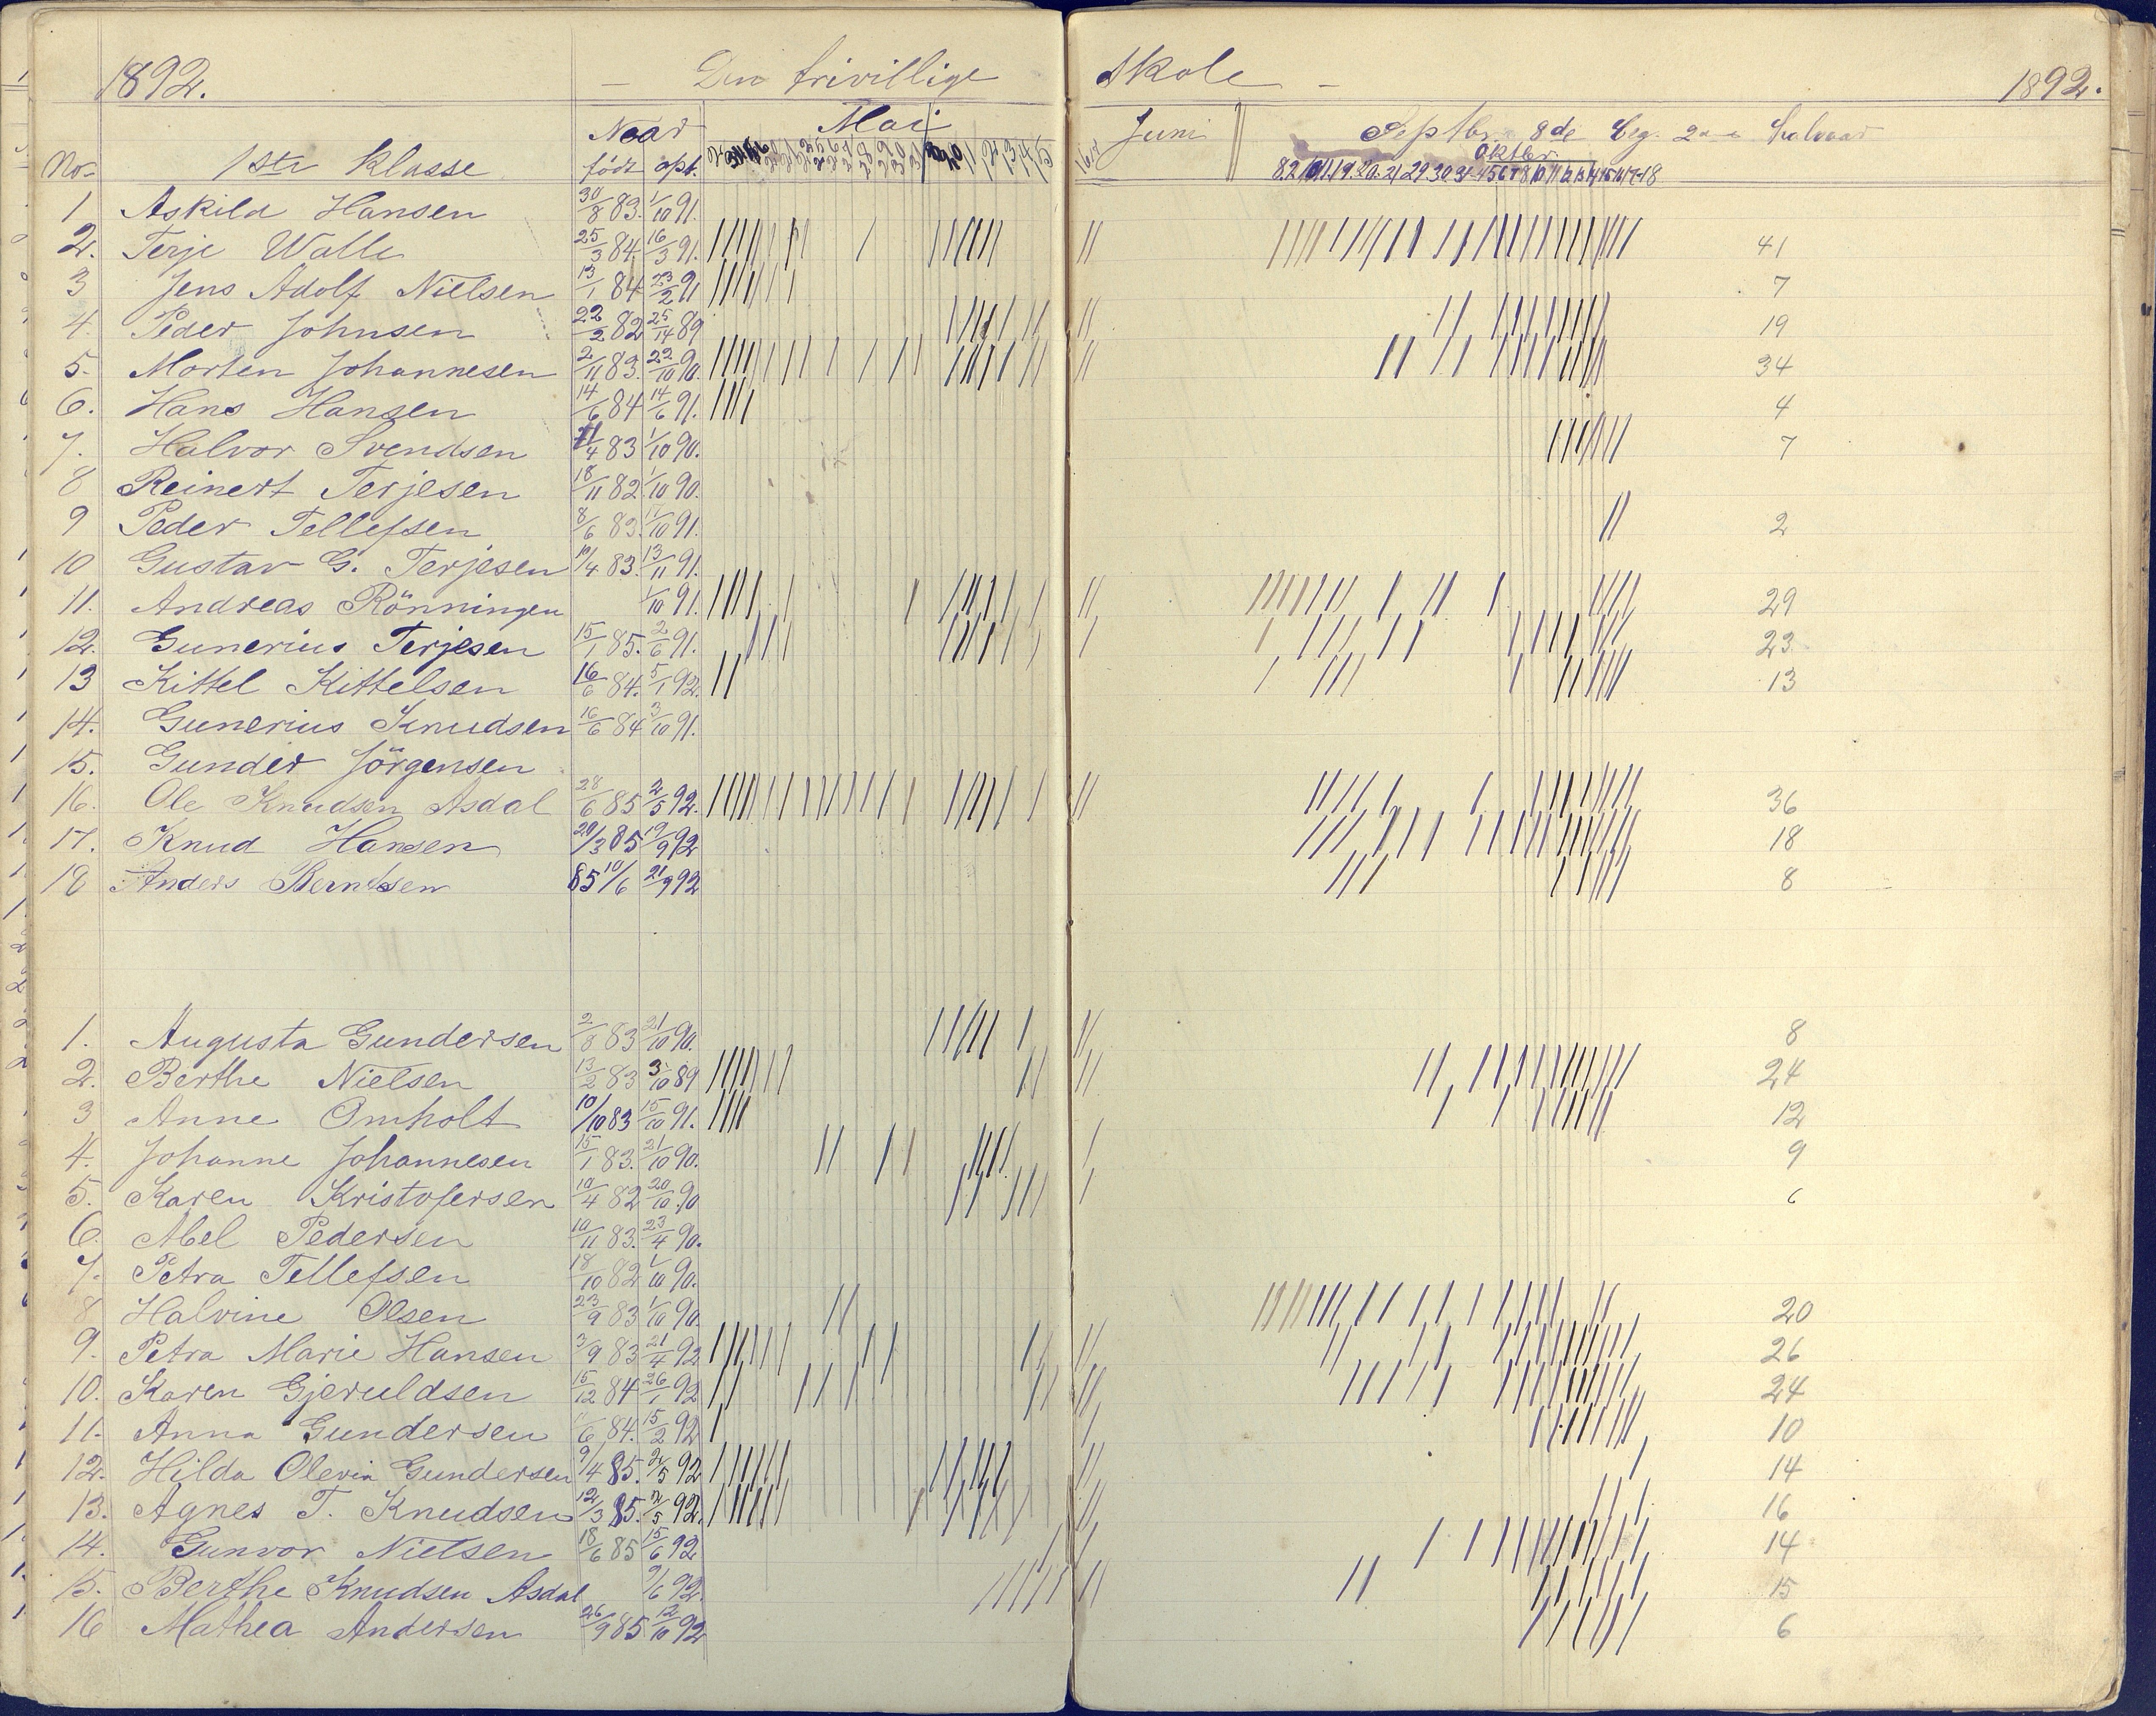 1892. — Den frivillige Skole — 1892.
Naar Mai Juni Septbr 8de beg. 2det halvaar
No. 1ste Klasse født opt. Oktbr.
1 Askild Hansen 30/8 83. 1/10 91.
2. Terje Walle 25/3 84. 16/3 91. 41
3 Jens Adolf Nielsen 13/1 84 23/2 91 7
4. Peder Johnsen 22/2 82 89 19
5. Morten Johannesen 2/11 83. 22/10 90. 34
6. Hans Hansen 14/6 84 14/6 91. 4
7. Halvor Svendsen 83 1/10 90. 7
8 Reinert Terjesen 18/11 82 1/10 90.
9 Peder Tellefsen 8/6 83. 91. 2
10 Gustav G. Terjesen 10/4 83. 13/11 91.
11. Andreas Rönningen 1/10 91. 29
12. Gunerius Terjesen 15/1 85. 2/6 91. 23
13 Kittel Kittelsen 16/6 84. 5/1 92. 13
14. Gunerius Knudsen 16/6 84 3/10 91.
15. Gunder Jörgensen
16. Ole Knudsen Asdal 28/6 85 2/5 92. 36
17. Knud Hansen 29/3 85 19/9 92 18
18 Anders Berntsen 85 10/6 21/9 92 8
1. Augusta Gundersen 2/8 83 21/10 90. 8
2. Berthe Nielsen 13/2 83 3/10 89 24
3 Anne Omholt 10/10 83 15/10 91. 12
4. Johanne Johannesen 15/1 83. 21/10 90. 9
5. Karen Kristofersen 10/4 82 20/10 90 6
6. Abel Pedersen 10/11 83. 23/4 90.
7. Petra Tellefsen 18/10 82 1/10 90.
8 Halvine Olsen 23/9 83 1/10 90. 20
9. Petra Marie Hansen 3/9 83 21/4 92 26
10. Karen Gjeruldsen 15/12 84 26/1 92 24
11. Anna Gundersen 84. 15/2 92 10
12. Hilda Olevia Gundersen 9/4 85. 2/5 92 14
13. Agnes T. Knudsen 12/3 85. 2/5 92. 16
14. Gunvor Nielsen 18/6 85 15/6 92 14
15. Berthe Knudsen Asdal 9/6 92. 15
16 Mathea Andersen 26/9 85 12/10 92 6